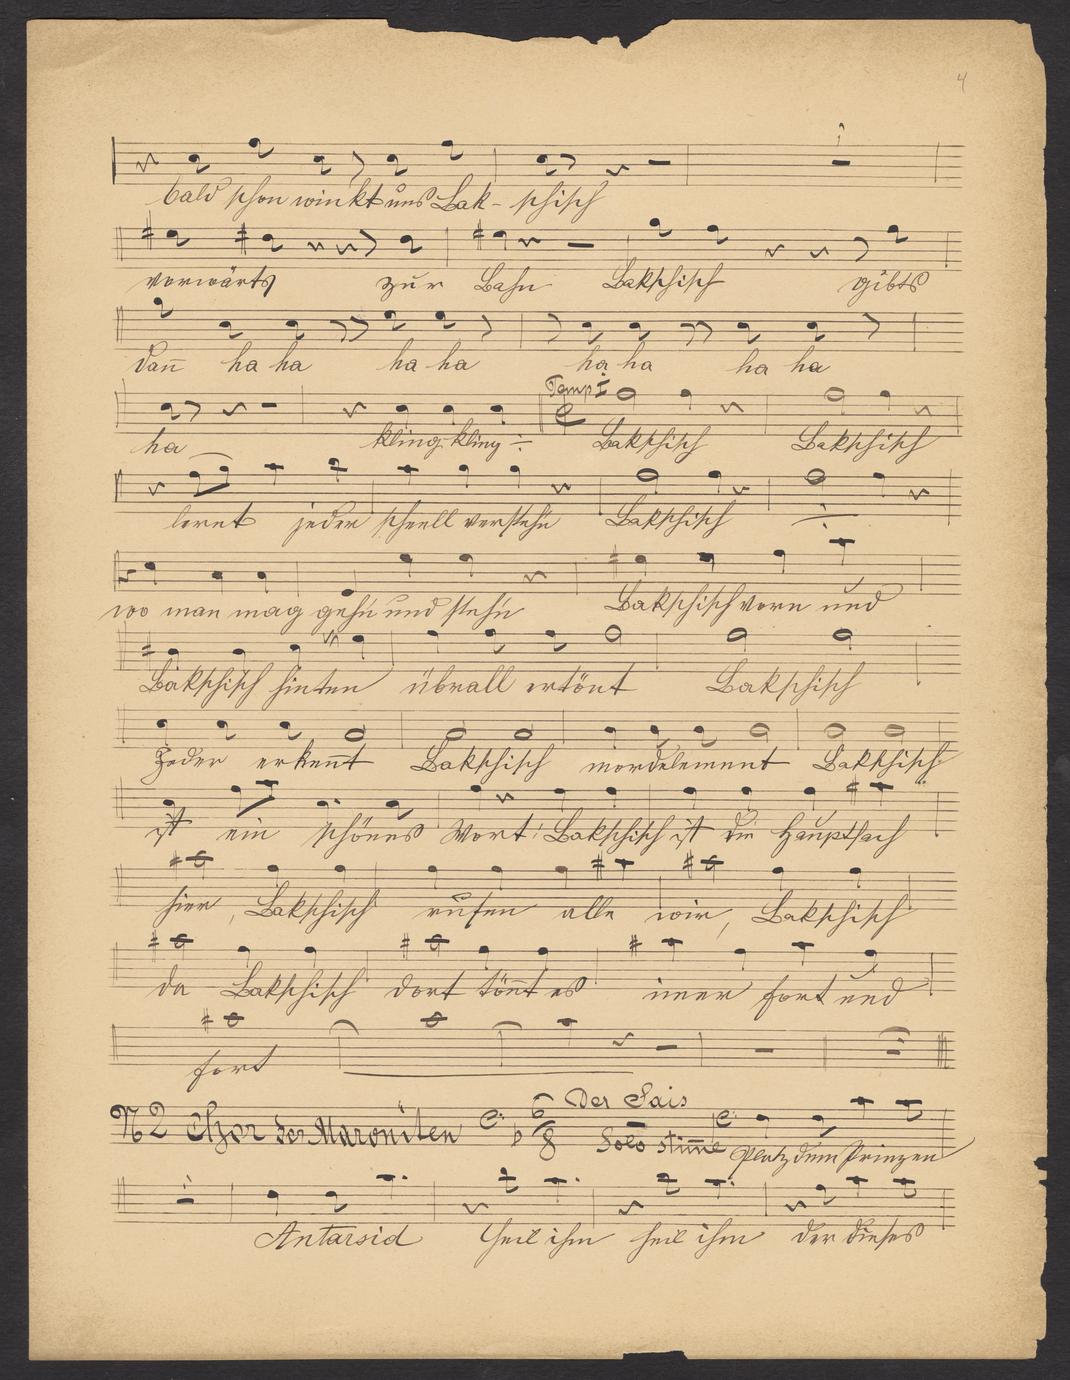 4
bald schon winkt uns Bak- schisch
vorwärts zur Bahn Bakschisch gibts
dan̅ ha ha ha ha ha ha ha ha
Temp I
ha kling-kling ÷ Bakschisch Bakschisch
lernt jeder schnell verstehn Bakschisch ÷
wo man mag gehn und stehn Bakschisch vorn und
Bakschisch hinten übrall ertönt Bakschisch
Jeder erken̅t Bakschisch mordelement Bakschisch
ist ein schönes Wort Bakschisch ist die Hauptsach
hier, Bakschisch rufen alle wir, Bakschisch
da Bakschisch dort tön̅t es im̅er fort und
fort
N 2 Chor der Maroniten 6/8 Der Sais Solo stim̅e Platz dem Prinzen
Antarsid heil ihm heil ihm der dieses